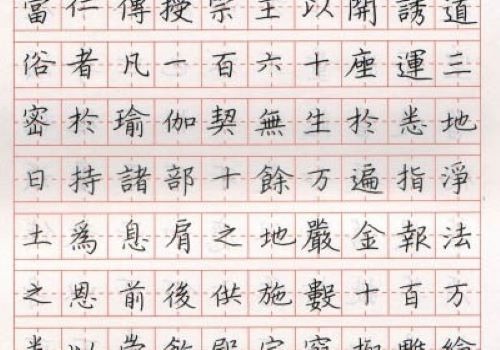 當仁傳授宗主以開誘道
俗者凡一百六十座運三
密於瑜伽契無生於悉地
日持諸部十餘万遍指淨
土爲息肩之地嚴金報法
之恩前後供施數十百万
悉以崇飾殿宇窮極雕繪